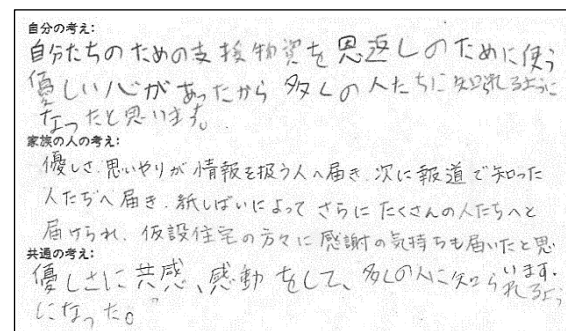 自分の考え:
自分たちのための支援物資を恩返しのために使う
優しい心があったから多くの人たちに知られるように
なったと思います。
家族の人の考え:
優しさ、思いやりが情報を扱う人へ届き、次に報道で知った
人たちへ届き、紙しばいによってさらにたくさんの人たちへと
届けられ、仮設住宅の方々に感謝の気持ちも届いたと思
います。
共通の考え:
優しさに共感、感動をして、多くの人に知られるよう
になった。